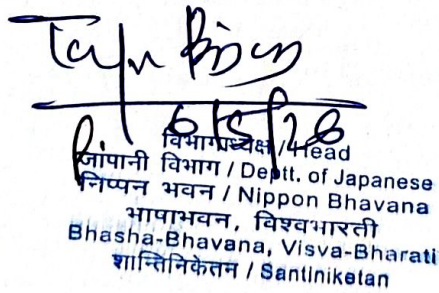 6/5/26
विभागाध्यक्ष / Head
जापानी विभाग / Deptt. of Japanese
निप्पन भवन / Nippon Bhavana
भाषाभवन, विश्वभारती
Bhasha-Bhavana, Visva-Bharati
शान्तिनिकेतन / Santiniketan